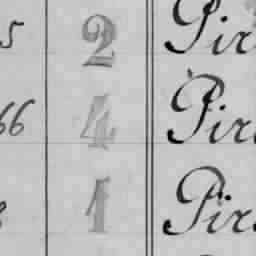 5 2 Pir
66 4 Pir
1 Pir